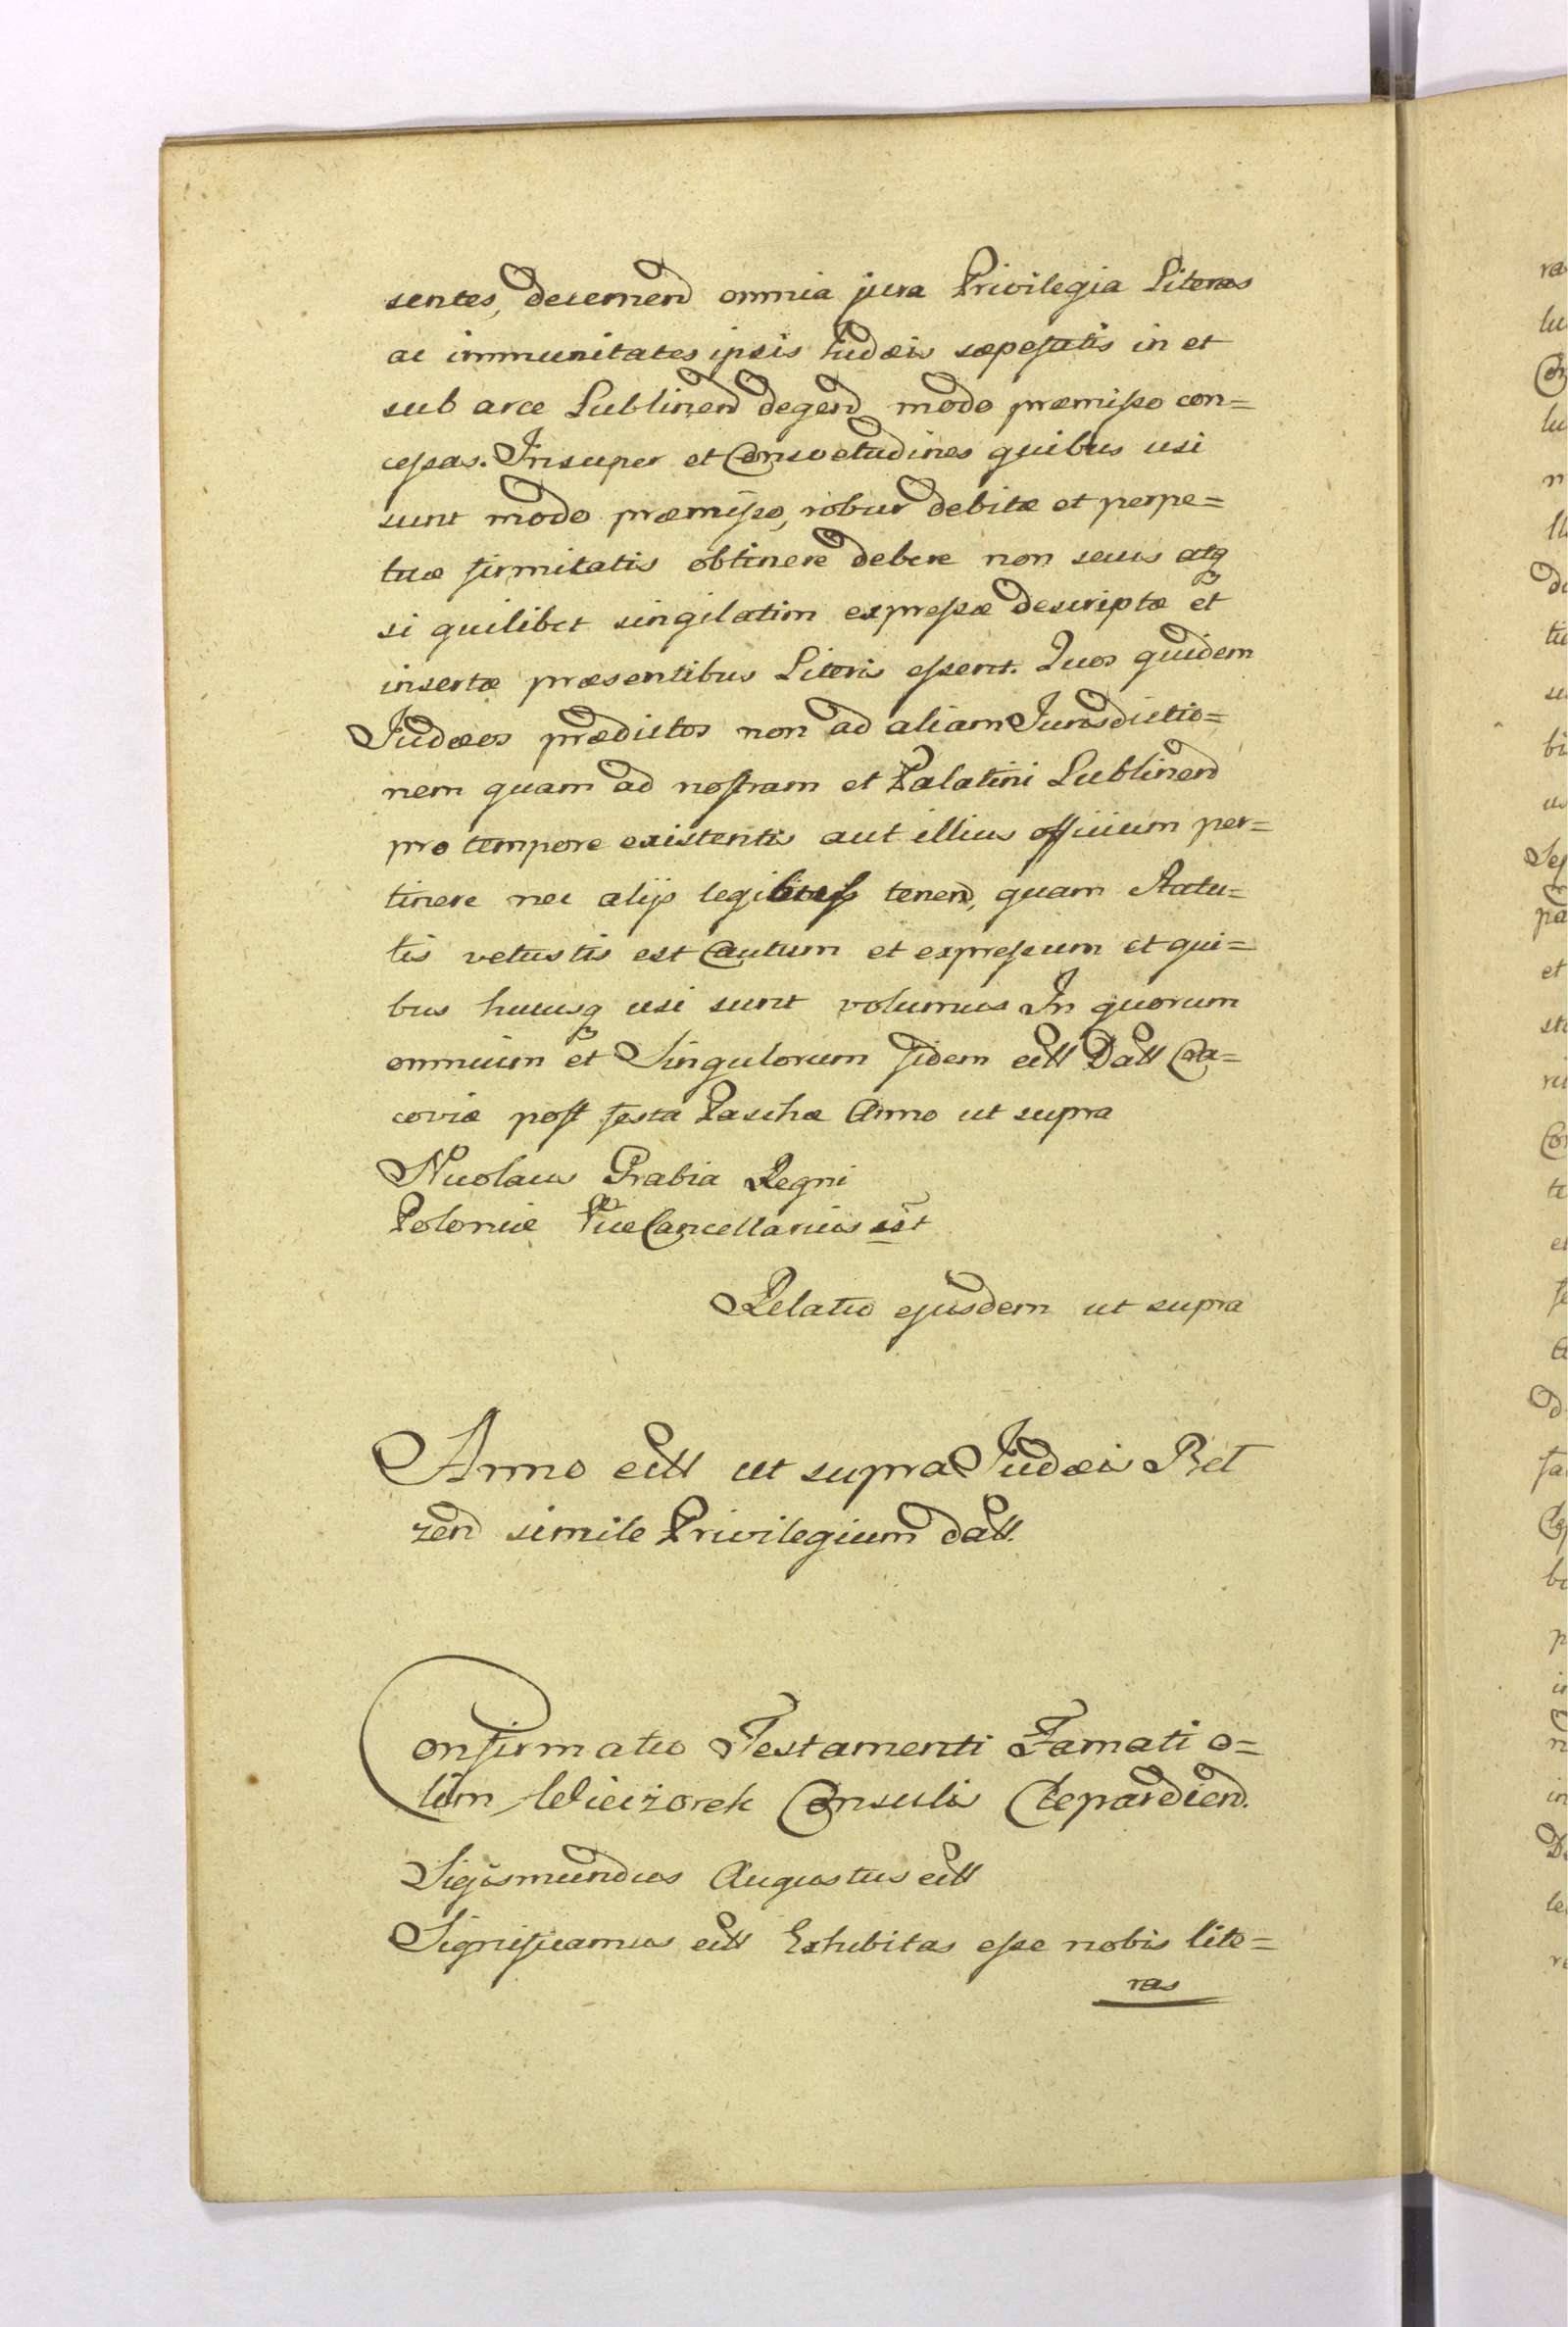 sentes, decernend omnia jura Privilegia Literas
ac immunitates ipsis Iudæis sæpefatis in et
sub arce Lublinend degend modo præmisso con=
cessas. Insuper et Consvetudines quibus usi
sunt modo præmisso, robur debitæ et perpe=
tuæ firmitatis obtinere debere non secus atq
si quilibet singilatim expressæ descriptæ et
insertæ præsentibus Literis essent. Quos quidem
Judæos prædictos non ad aliam Jurisdictio=
nem quam ad nostram et Palatini Lublinend
pro tempore existentis aut illius officium per=
tinere nec alijs legibus tenend, quam Statu=
tis vetustis est Cautum et expressum et qui=
bus hucusq usi sunt volumus In quorum
omnium et Singulorum fidem ett Datt Cra=
coviæ post festa Paschæ Anno ut supra
Nicolaus Grabia Regni
Poloniæ ViceCancellarius sst
Relatio ejusdem ut supra
Anno ett ut supra Judæis Bel
zend simile Privilegium datt.
Confirmatio Testamenti Famati o=
lim Wieczorek Consulis Clepardiend.
Sigismundus Augustus ett
Significamus ett Exhibitas esse nobis lite=
ras